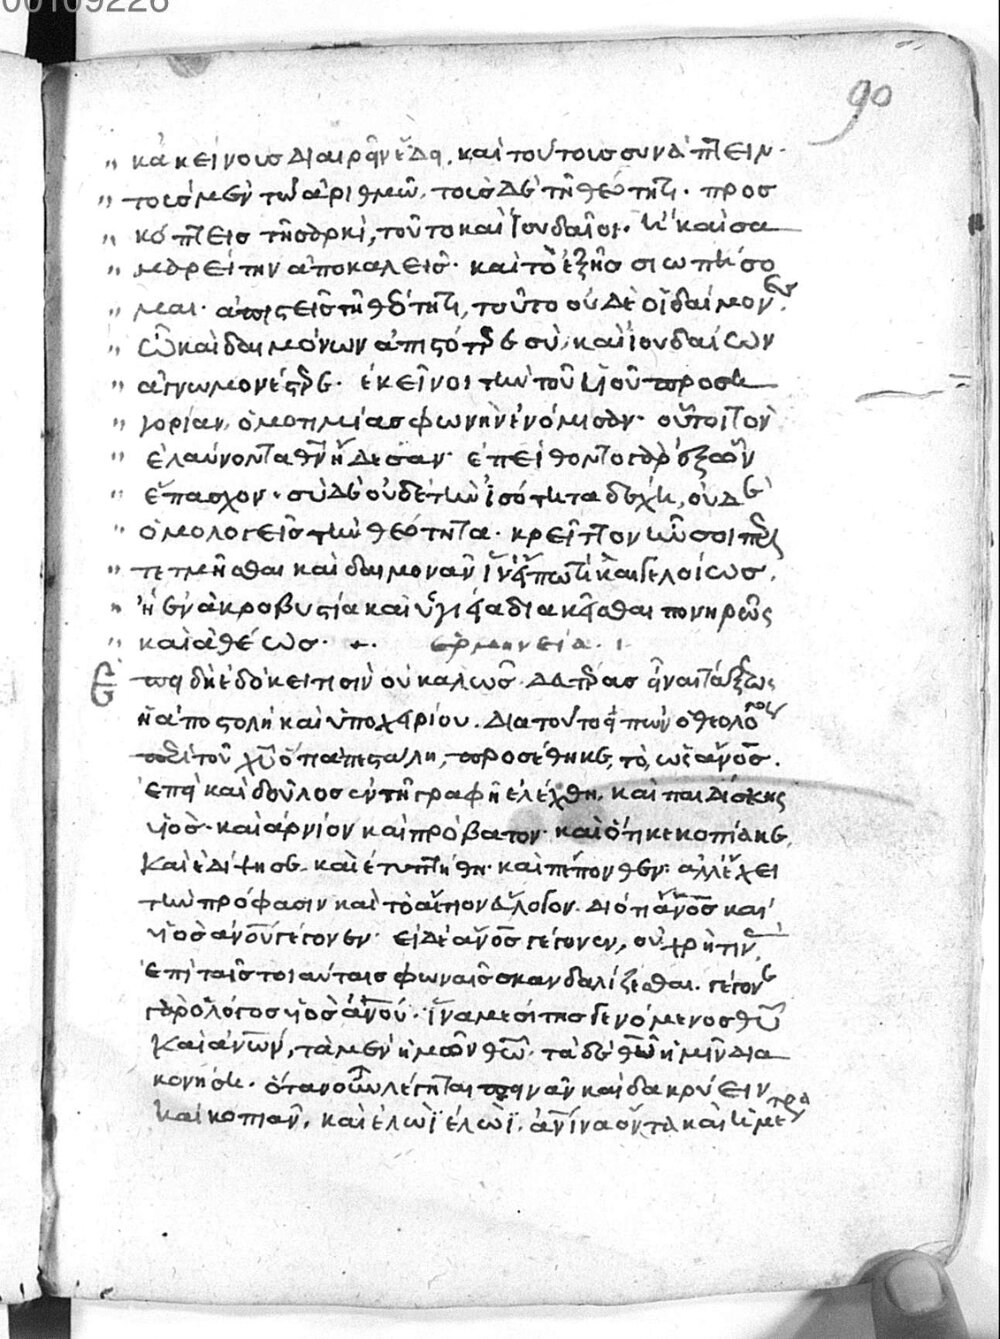 00109226
90
κἀκείνους διαιρεῖν ἔδει, καὶ τούτους συνάπτειν·
τοὺς μὲν τῷ ἀριθμῷ, τοὺς δὲ τῇ θεότητι. προσ
κόπτεις τῇ σαρκὶ, τοῦτο καὶ Ἰουδαῖοι. ἢ καὶ σα
μαρείτην ἀποκαλεῖς· καὶ τὸ ἑξῆς σιωπήσο
μαι. ἀπιστεῖς τῇ θεότητι, τοῦτο οὐδὲ οἱ δαίμονες.
ὦ καὶ δαιμόνων ἀπιστότερε σὺ, καὶ Ἰουδαίων
ἀγνωμονέστερε. ἐκεῖνοι τὴν τοῦ υἱοῦ προση
γορίαν, ὁμοτιμίας φωνὴν ἐνόμισαν. οὗτοι τὸν
ἐλαύνοντα θν ᾔδεσαν. ἐπείθοντο γὰρ ἐξ ὧν
ἔπασχον. σὺ δὲ οὐδὲ τὴν ἰσότητα δέχῃ, οὐδὲ
ὁμολογεῖς τὴν θεότητα. κρεῖττον ἦν σοι περι
τετμῆσθαι καὶ δαιμονᾶν ἵν' εἴπω τι καὶ γελοίως,
ἢ ἐν ἀκροβυστία καὶ ὑγιεία διακεῖσθαι πονηρῶς
καὶ ἀθέως. ἑρμηνεία.
δὴ ἐδόκει τισὶν οὐ καλῶς
ἢ ἀποστολὴ καὶ ὑποχείριον. διὰ τοῦτο εἰπὼν ὁ θεολόγος
περὶ τοῦ χυ ὅτι ἀπεστάλη, προσέθηκε, τὸ, ὡς ανος.
ἐπεὶ καὶ δοῦλος ἐν τῇ γραφῇ ἐλέχθη, καὶ παιδίσκης
υἱός. καὶ ἀρνίον καὶ πρόβατον. καὶ ὅτι κεκοπίακε,
καὶ ἐδίψησε. καὶ ἐτυπτήθη. καὶ πέπονθεν. ἀλλ' ἔχει
τὴν πρόφασιν καὶ τὸ αἴτιον εὔλογον. διότι ανος καὶ
υἱὸς ανου γέγονεν. εἰ δὲ ανος γέγονεν, οὐ χρή τινα
ἐπὶ ταῖς τοιαύταις φωναῖς σκανδαλίζεσθαι. γέγονε
γὰρ ὁ λόγος υἱὸς ανου. ἵνα μεσίτης γενόμενος θυ
καὶ ανων, τὰ μὲν ἡμῶν θω. τὰ δὲ θυ ἡμῖν δια
κονήσῃ. ὅταν οὖν λέγηται πεινᾶν καὶ δακρύειν
καὶ κοπιᾶν, καὶ ἐλωῒ ἐλωῒ,